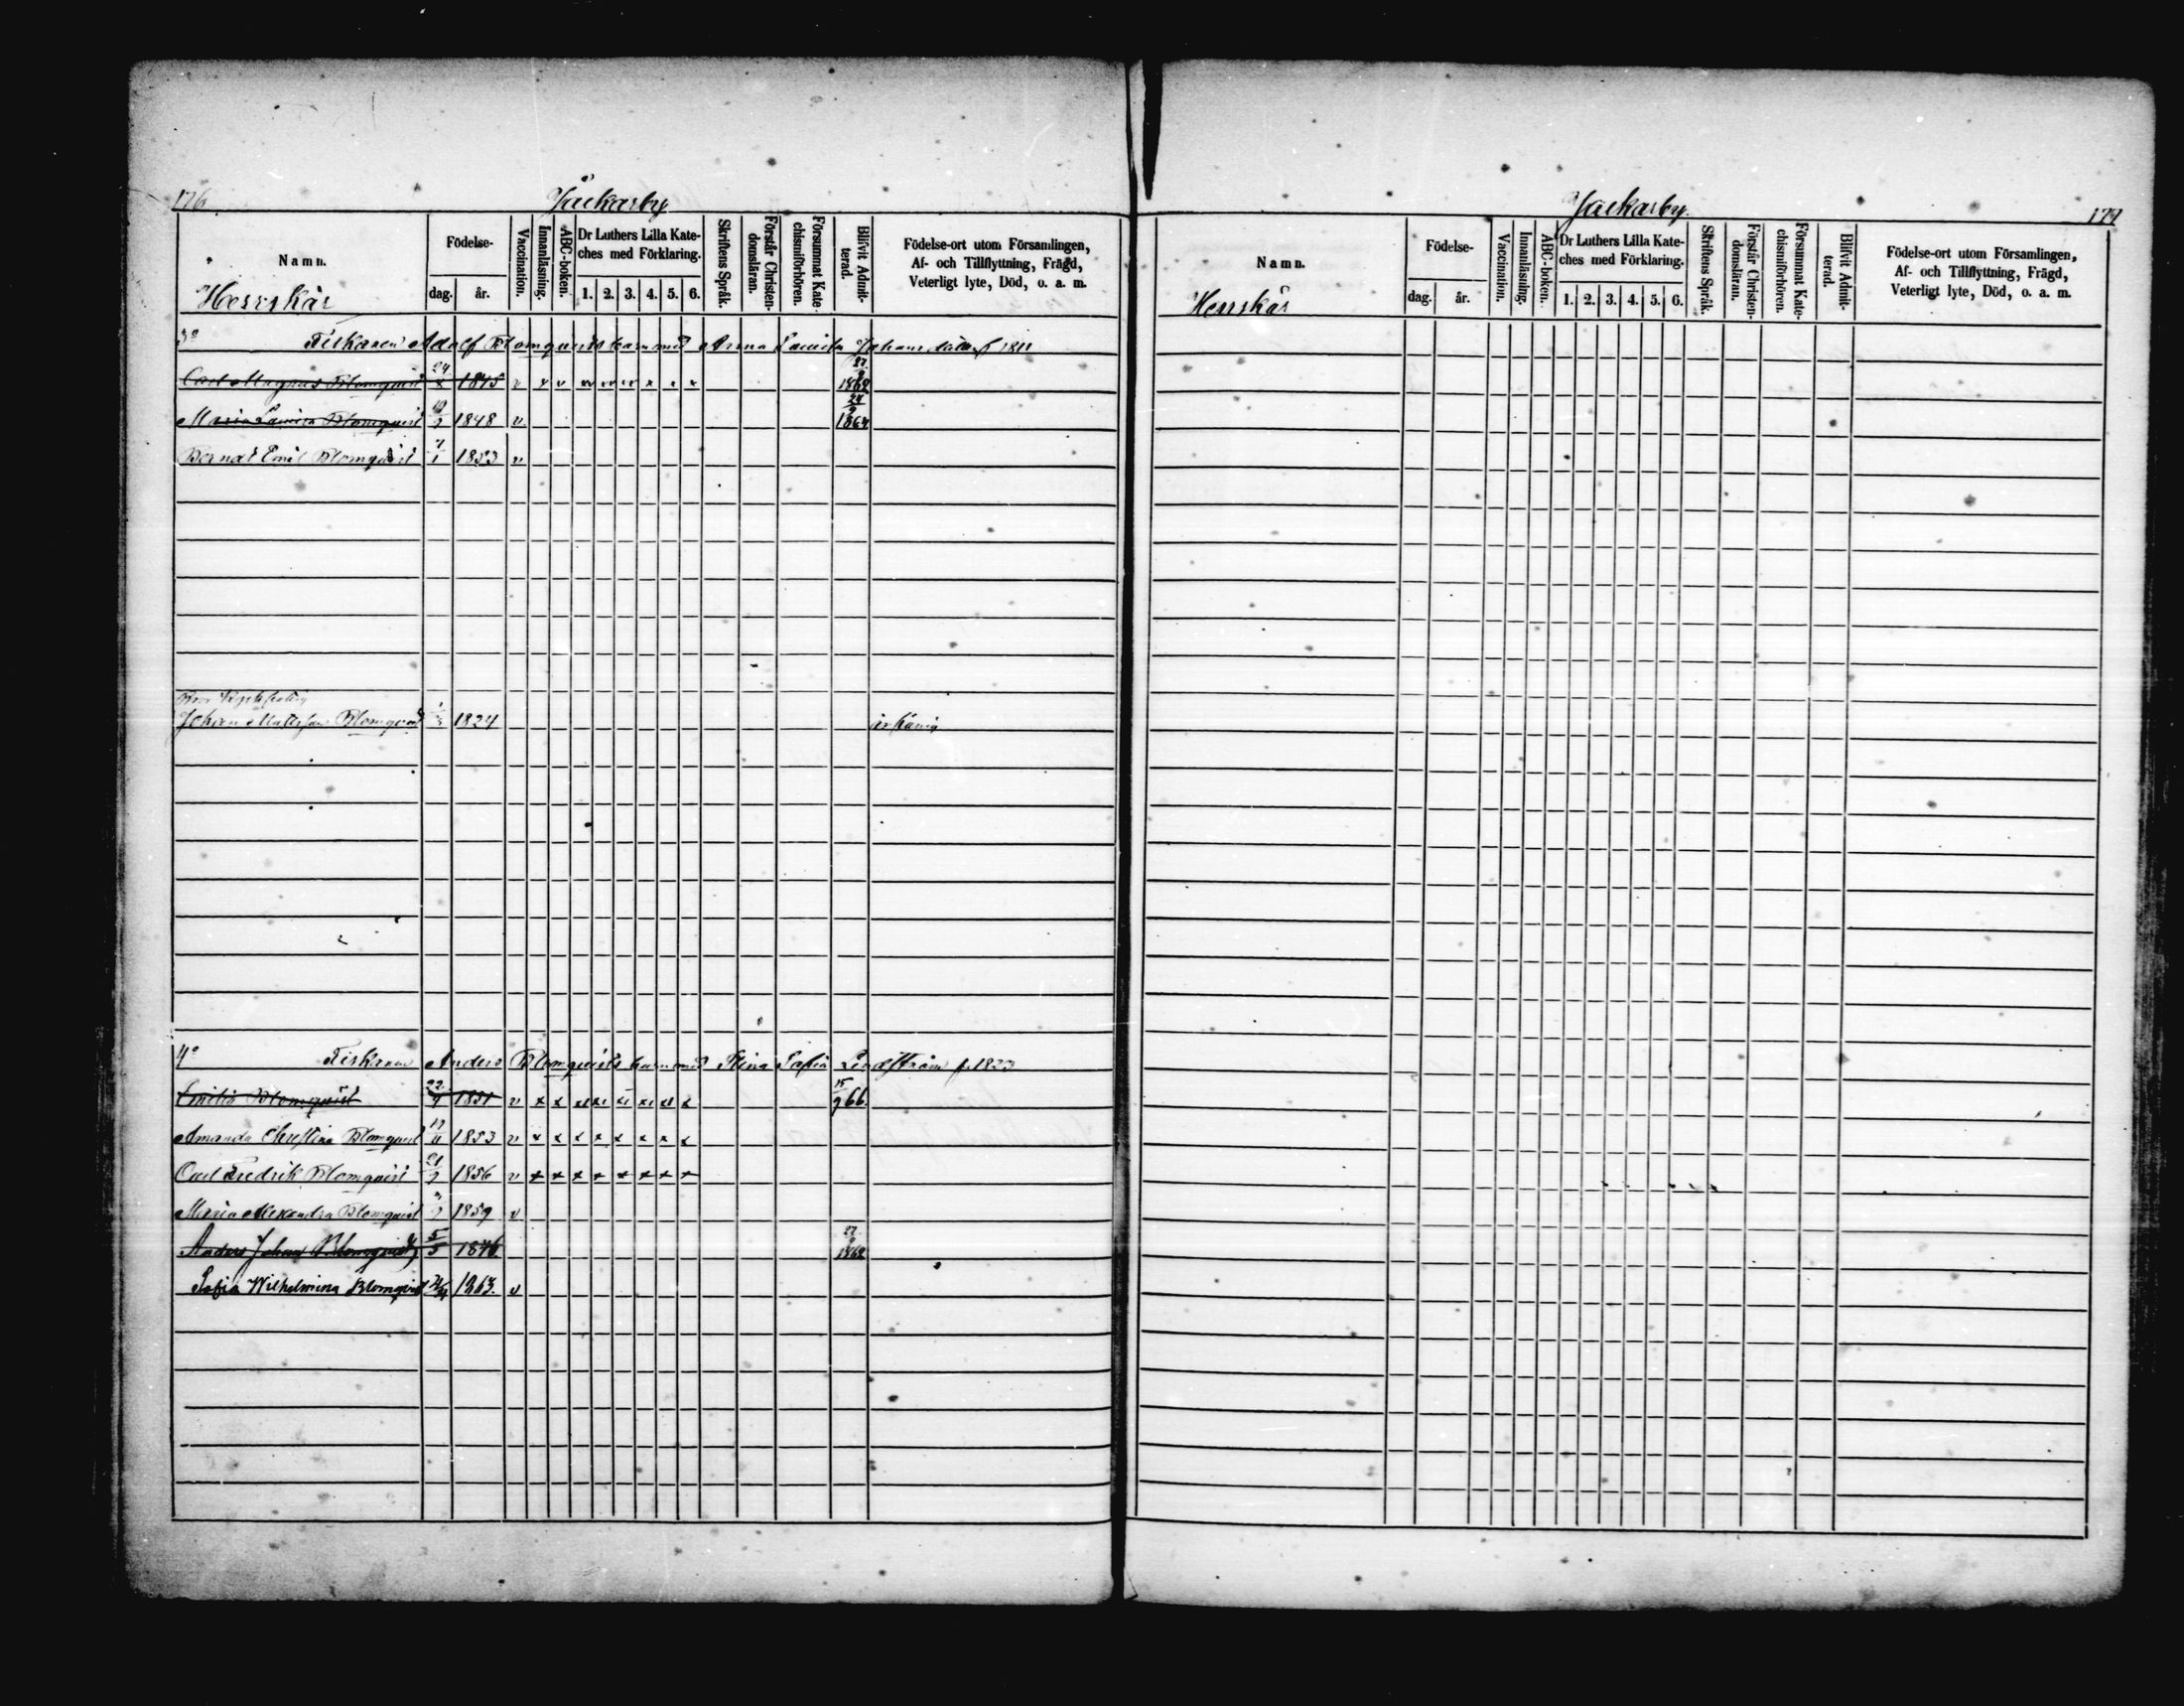 176
Jackarby
Namn.
Födelse-
dag.
år.
Vaccination.
Innanläsning.
ABC-boken.
Dr Luthers Lilla Kate-
ches med Förklaring.
1. 2. 3. 4. 5. 6.
Skriftens Språk.
Förstår Christen-
domsläran.
Försummat Kate-
chismiförhören.
Blifvit Admit-
terad.
Födelse-ort utom Församlingen,
Af- och Tillflyttning, Frägd,
Veterligt lyte, Död, o. a. m.
Herrskär
3o Fiskaren Adolf Blomquists barn med Anna Lovisa f 1811
Carl Magnus Blomquist 24 1845 v 27 1862
Maria Lovisa Blomquist 1848 v 24 9 1864
Bernat Emil Blomquist 7 1 1853 v
Johan Blomquist 1824
4o Fiskaren Anders Blomquists barn med Stina Sofia Lindström f. 1823
Emilia Blomquist 22 9 1851 v x x x x x x x x 15 9 66
Amanda Christina Blomquist 17 11 1853 v x x x x x x x x
Carl Fredrik Blomquist 21 9 1856 v x x x x x x x x
Maria Alexandra Blomquist 3 9 1859 v
Anders Johan Blomquist 5 5 1846 27 9 1862
Sofia Wilhelmina Blomqvist 1863. v
Jackarby.
177
Namn.
Födelse-
dag.
år.
Vaccination.
Innanläsning.
ABC-boken.
Dr Luthers Lilla Kate-
ches med Förklaring.
1. 2. 3. 4. 5. 6.
Skriftens Språk.
Förstår Christen-
domsläran.
Försummat Kate-
chismiförhören.
Blifvit Admit-
terad.
Födelse-ort utom Församlingen,
Af- och Tillflyttning, Frägd,
Veterligt lyte, Död, o. a. m.
Herrskär